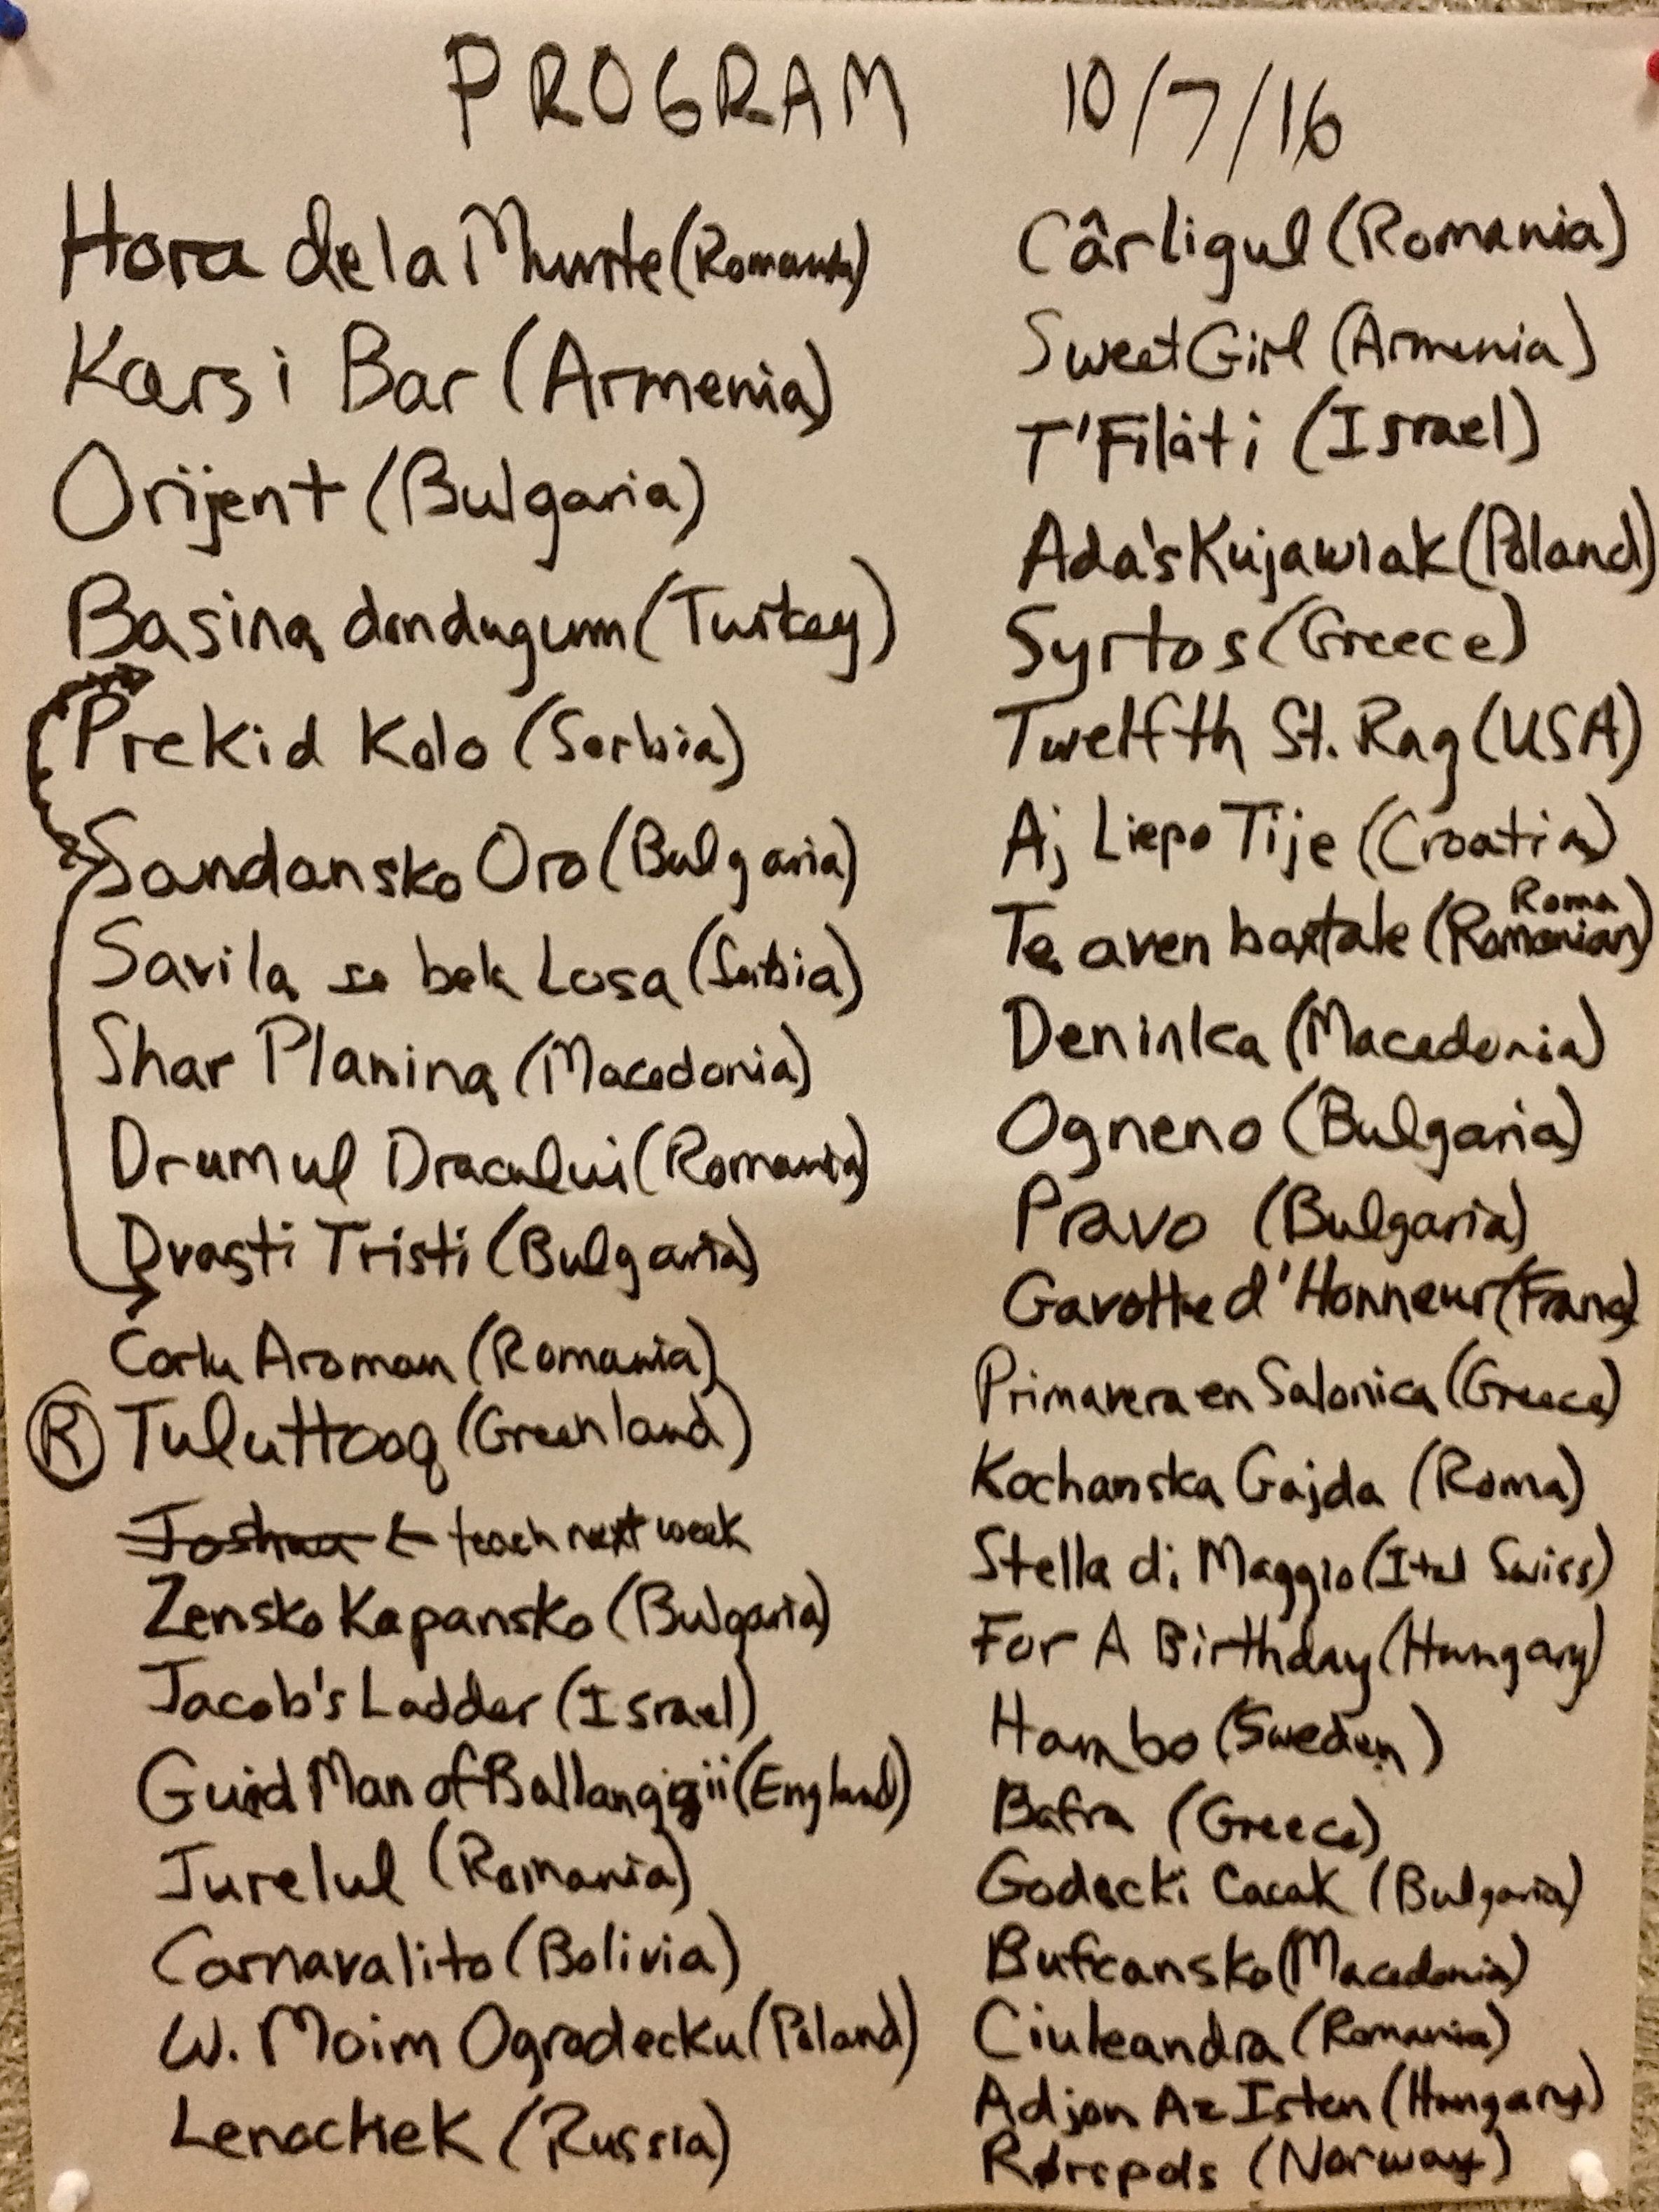 PROGRAM 10/7/16
Hora de la Munte (Romania)
Karsi Bar (Armenia)
Orijent (Bulgaria)
Basina dondugum (Turkey)
Prekid Kolo (Serbia)
Sandansko Oro (Bulgaria)
Savila se bela Losa (Serbia)
Shar Planina (Macedonia)
Drumul Dracului (Romania)
Drasti Tristi (Bulgaria)
Corlu Aroman (Romania)
R Tuluttooq (Greenland)
Joshua ← teach next week
Zensko Kapansko (Bulgaria)
Jacob's Ladder (Israel)
Guid Man of Ballangigii (England)
Jurelul (Romania)
Carnavalito (Bolivia)
W. Moim Ogrodecku (Poland)
Lenochek (Russia)
Cârligul (Romania)
Sweet Girl (Armenia)
T'Filati (Israel)
Ada's Kujawiak (Poland)
Syrtos (Greece)
Twelfth St. Rag (USA)
Aj Liepo Tije (Croatia)
Roma
Te aven baxtale (Romanian)
Deninka (Macedonia)
Ogneno (Bulgaria)
Pravo (Bulgaria)
Gavotte d'Honneur (France)
Primavera en Salonica (Greece)
Kochanska Gajda (Roma)
Stella di Maggio (Ital Swiss)
For A Birthday (Hungary)
Hambo (Sweden)
Bafra (Greece)
Godecki Cacak (Bulgaria)
Bufcansko (Macedonia)
Ciuleandra (Romania)
Adjon Az Isten (Hungary)
Rørospols (Norway)